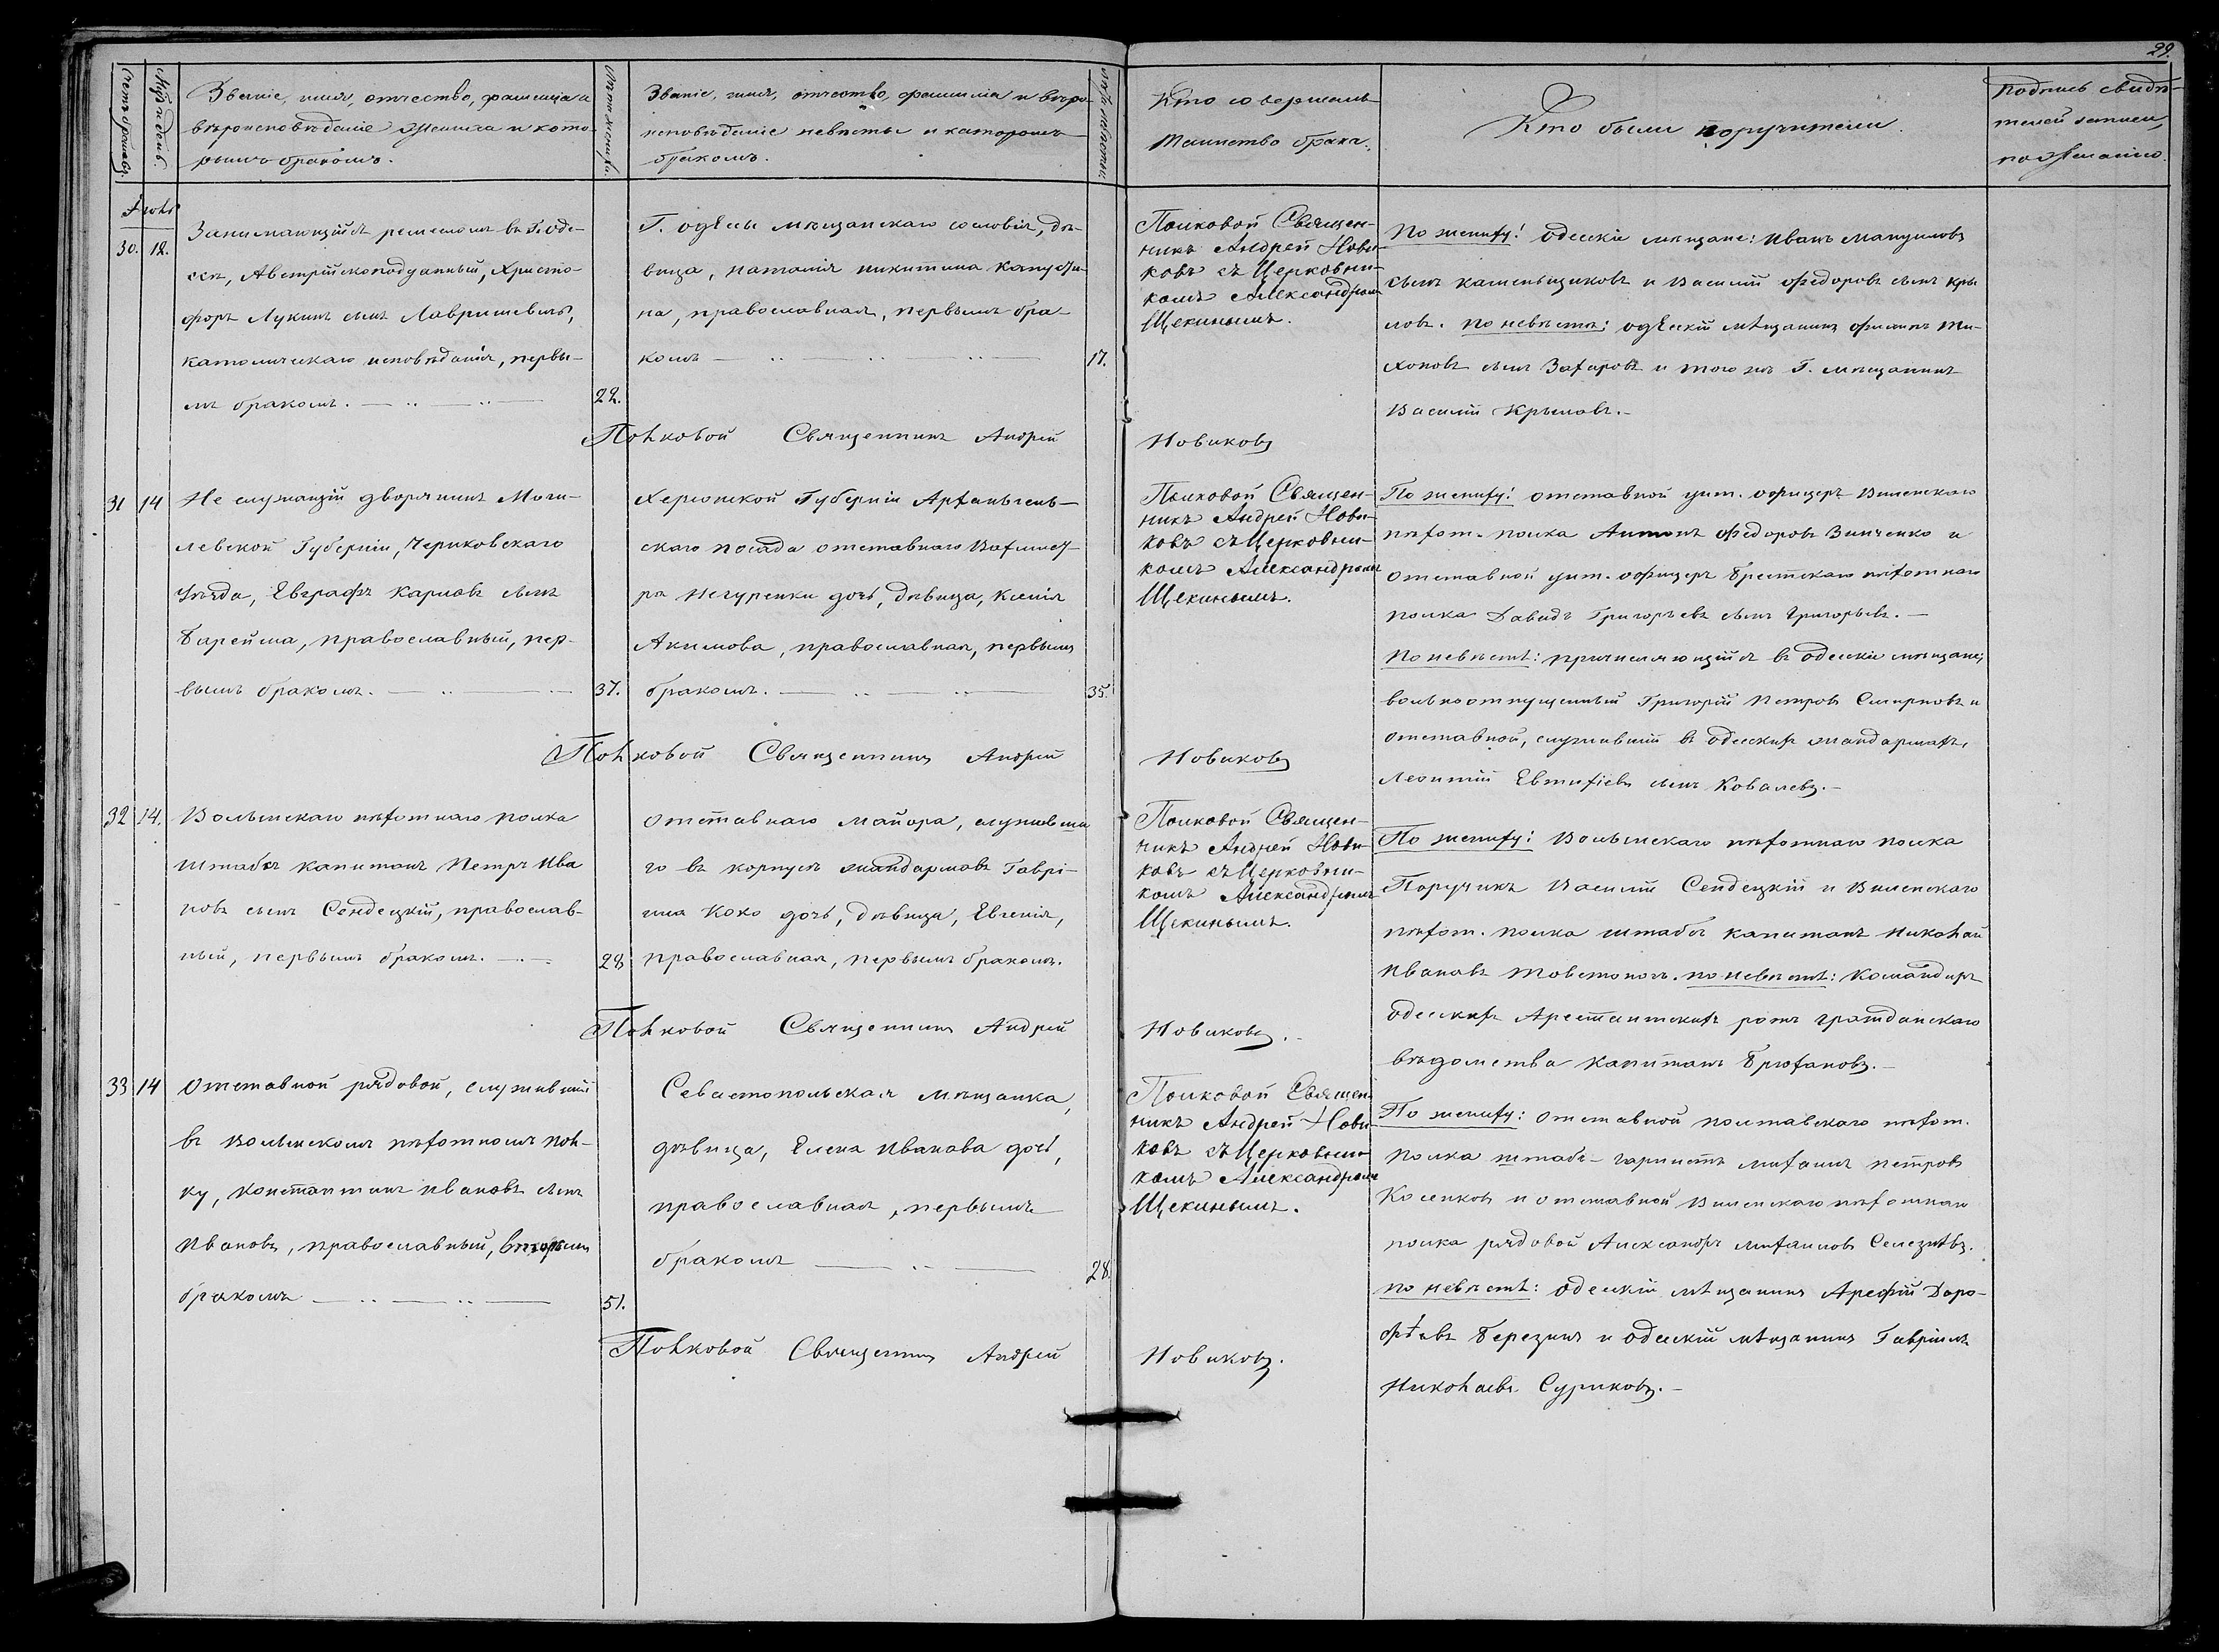 29.
Счетъ браковъ.
Мѣсяцъ и день.
Званіе, имя, отчество, фамилія и
вѣроисповѣданіе жениха и кото-
рымъ бракомъ.
Лѣта жениха.
Званіе, имя, отчество, фамилія и вѣро-
исповѣданіе невѣсты и которымъ
бракомъ.
Лѣта невѣсты.
Кто совершалъ
Таинство брака.
Кто были поручители.
Подпись свидѣ-
телей записи,
по желанію.
30. 12.
Занимающійся ремесломъ въ Г. Оде-
ссѣ, Австрійскоподданный, Христо-
форъ Лукинъ сынъ Лавришевичъ,
католическаго исповѣданія, первы-
мъ бракомъ.
22.
Г. Одессы мѣщанскаго сословія, дѣ-
вица, Наталія Никитина Капусти-
на, православная, первымъ бра-
комъ
17.
Полковой Священ-
никъ Андрей Нови-
ковъ съ Церковни-
комъ Александромъ
Щекинымъ.
По жениху: Одесскіе мѣщане: Иванъ Мануиловъ
сынъ Каменьщиковъ и Василій Федоровъ сынъ Кры
ловъ. По невѣстѣ: Одесскій мѣщанинъ Филипъ Ти-
хоновъ сынъ Захаровъ и того же Г. мѣщанинъ
Василій Крыловъ.-
Полковой Священникъ Андрей Новиковъ
31 14
Не служащій дворянинъ Моги-
левской Губерніи, Чериковскаго
Уѣзда, Евграфъ Карловъ сынъ
Барейша, православный, пер-
вымъ бракомъ.
37.
Херсонской Губерніи Арханьгель-
скаго посада отставнаго Вахмист-
ра Негуренки дочь, дѣвица, Ксенія
Акимова, православная, первымъ
бракомъ.
35.
Полковой Священ-
никъ Андрей Нови-
ковъ съ Церковни-
комъ Александромъ
Щекинымъ.
По жениху: отставной унт. офицеръ Виленскаго
пѣхот. полка Антонъ Федоровъ Зинченко и
отставной унт. офицеръ Брестскаго пѣхотнаго
полка Давидъ Григорьевъ сынъ Григорьевъ.-
По невѣстѣ: причисляющійся въ Одесскіе мѣщане,
вольноотпущенный Григорій Петровъ Смирновъ и
отставной, служившій въ Одесскихъ жандармахъ,
Леонтій Евтихіевъ сынъ Ковалевъ.-
Полковой Священникъ Андрей Новиковъ
32 14.
Волынскаго пѣхотнаго полка
Штабсъ Капитанъ Петръ Ива
новъ сынъ Сендецкій, православ-
ный, первымъ бракомъ.
28
Отставнаго Майора, служивша
го въ корпусѣ жандармовъ Гаврі-
ила Коко дочь, дѣвица, Евгенія,
православная, первымъ бракомъ.
Полковой Священ-
никъ Андрей Нови-
ковъ съ Церковни-
комъ Александромъ
Щекинымъ.
По жениху: Волынскаго пѣхотнаго полка
Поручикъ Василій Сендецкій и Виленскаго
пѣхот. полка штабсъ капитанъ Николай
Ивановъ Товстоногъ. По невѣстѣ: Командиръ
Одесскихъ Арестантскихъ ротъ гражданскаго
вѣдомства Капитанъ Брюхановъ.-
Полковой Священникъ Андрей Новиковъ.
33 14
Отставной рядовой, служившій
въ Волынскомъ пѣхотномъ пол-
ку, Константинъ Ивановъ сынъ
Ивановъ, православный, вторымъ
бракомъ
51.
Севастопольская мѣщанка,
дѣвица, Елена Иванова дочь,
православная, первымъ
бракомъ
28.
Полковой Священ
никъ Андрей Нови
ковъ съ Церковни
комъ Александромъ
Щекинымъ.
По жениху: отставной Полтавскаго пѣхот.
полка штабъ-горнистъ Михаилъ Петровъ
Косенковъ и отставной Виленскаго пѣхотнаго
полка рядовой Александръ Михаиловъ Селезнѣвъ.
По невѣстѣ: Одесскій мѣщанинъ Арефій Доро-
фѣевъ Березинъ и Одесскій мѣщанинъ Гавріилъ
Николаевъ Суриковъ.-
Полковой Священникъ Андрей Новиковъ.